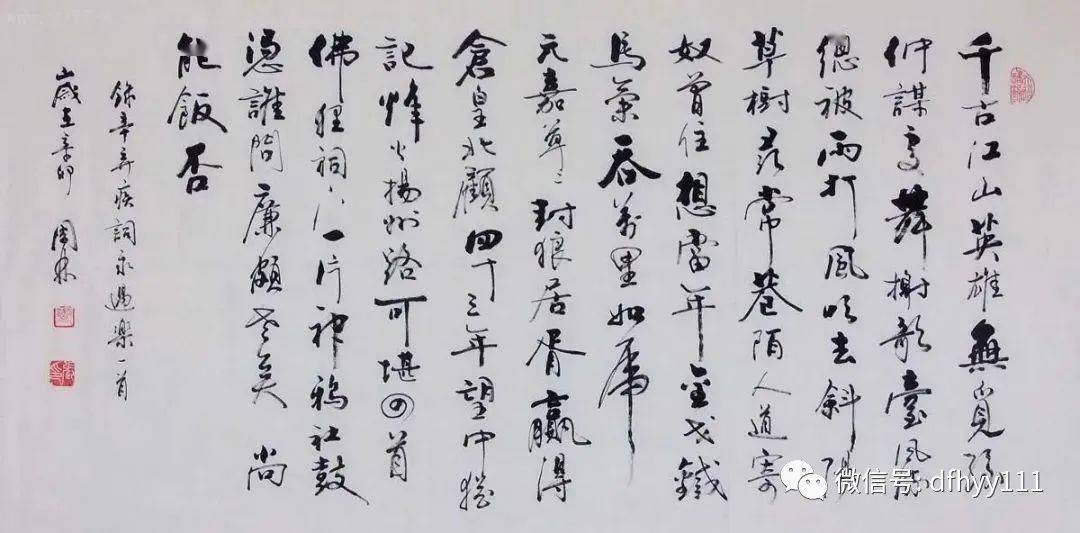 千古江山英雄無覓孫
仲謀處舞榭歌臺風流
總被雨打風吹去斜陽
草樹尋常巷陌人道寄
奴曾住想當年金戈鐵
馬氣吞萬里如虎
元嘉草〻封狼居胥贏得
倉皇北顧四十三年望中猶
記烽火揚州路可堪回首
佛狸祠下一片神鴉社鼓
憑誰問廉頗老矣 尚
能飯否
錄辛弃疾詞永遇樂一首
歲在辛卯 周林
微信号: dfhyy111